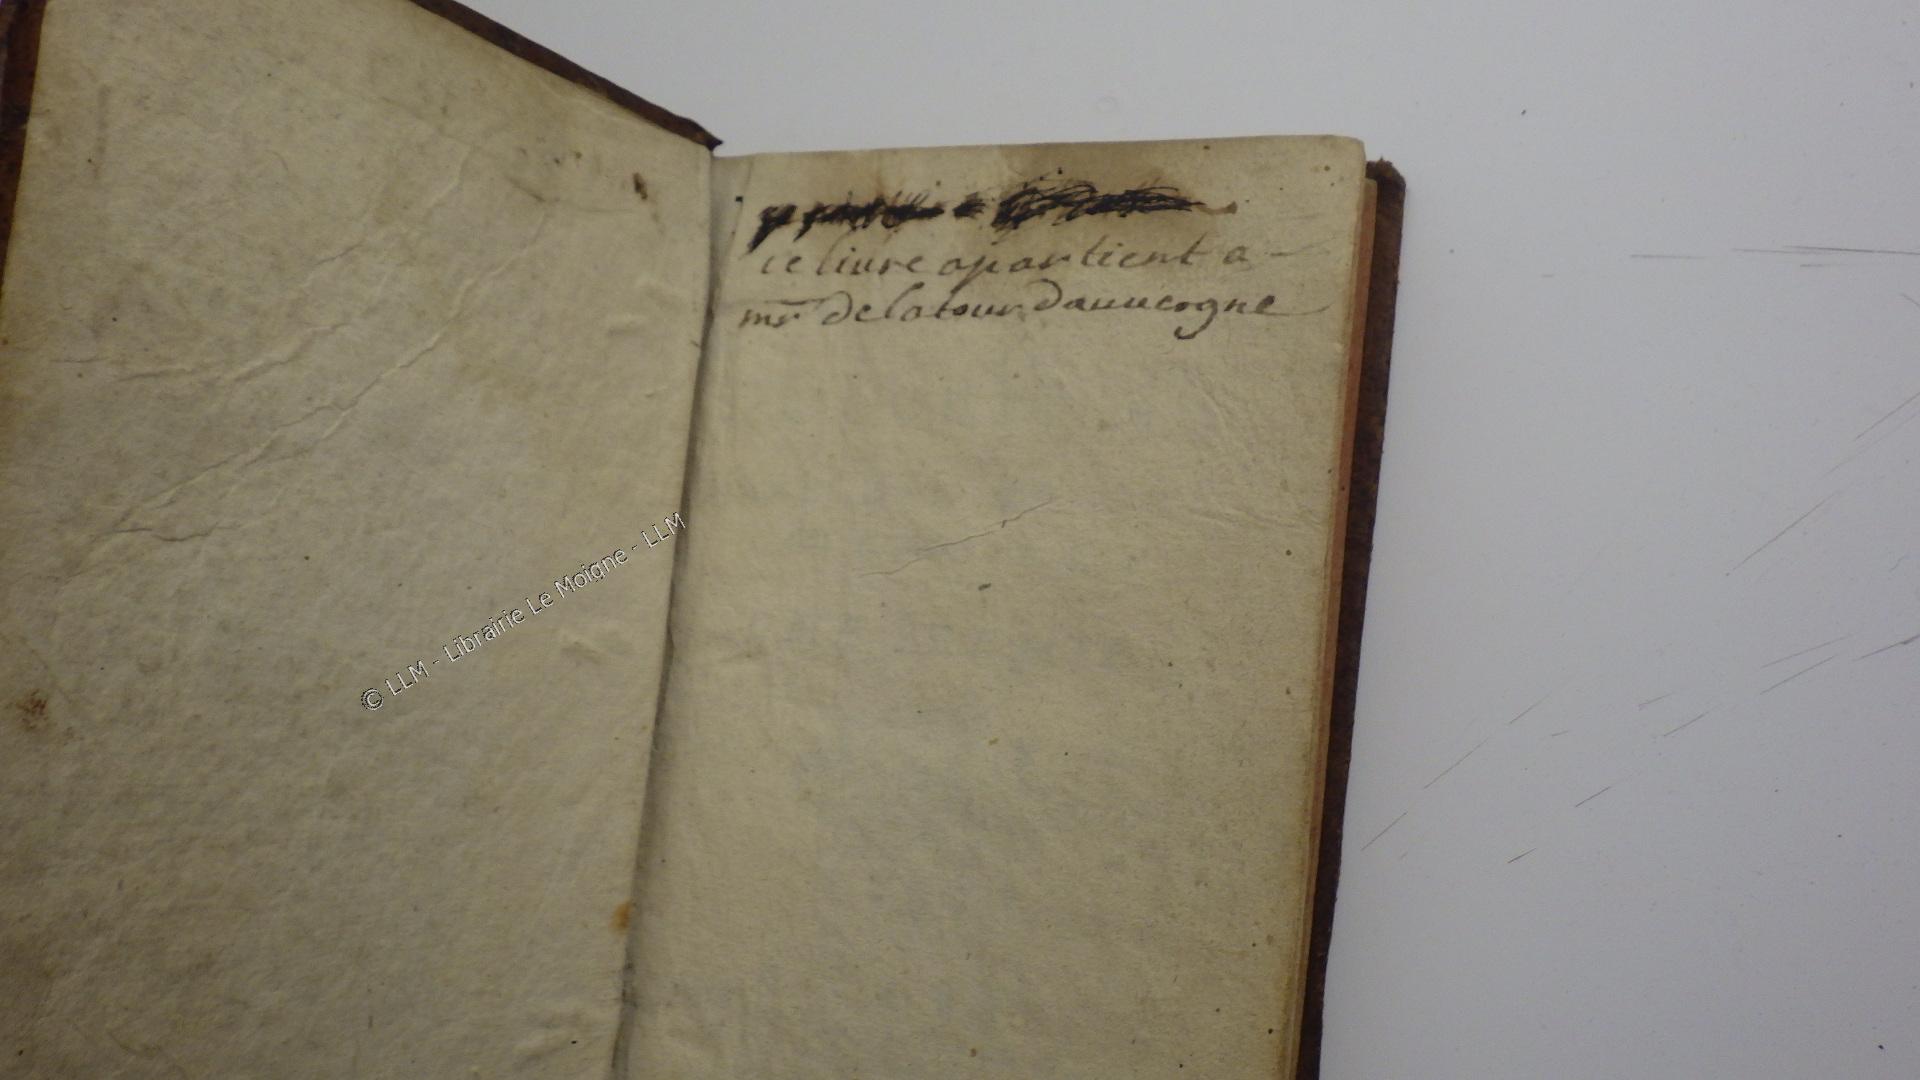 ce livre apartient a -
mr de latour dauuergne
© LLM - Librairie Le Moigne - LLM